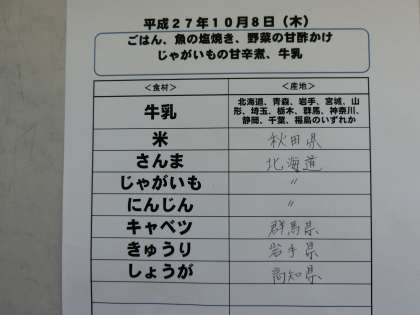 平成27年10月8日（木）
ごはん、魚の塩焼き、野菜の甘酢かけ
じゃがいもの甘辛煮、牛乳
＜食材＞ ＜産地＞
牛乳 北海道、青森、岩手、宮城、山
形、埼玉、栃木、群馬、神奈川、
静岡、千葉、福島のいずれか
米 秋田県
さんま 北海道
じゃがいも 〃
にんじん 〃
キャベツ 群馬県
きゅうり 岩手県
しょうが 高知県